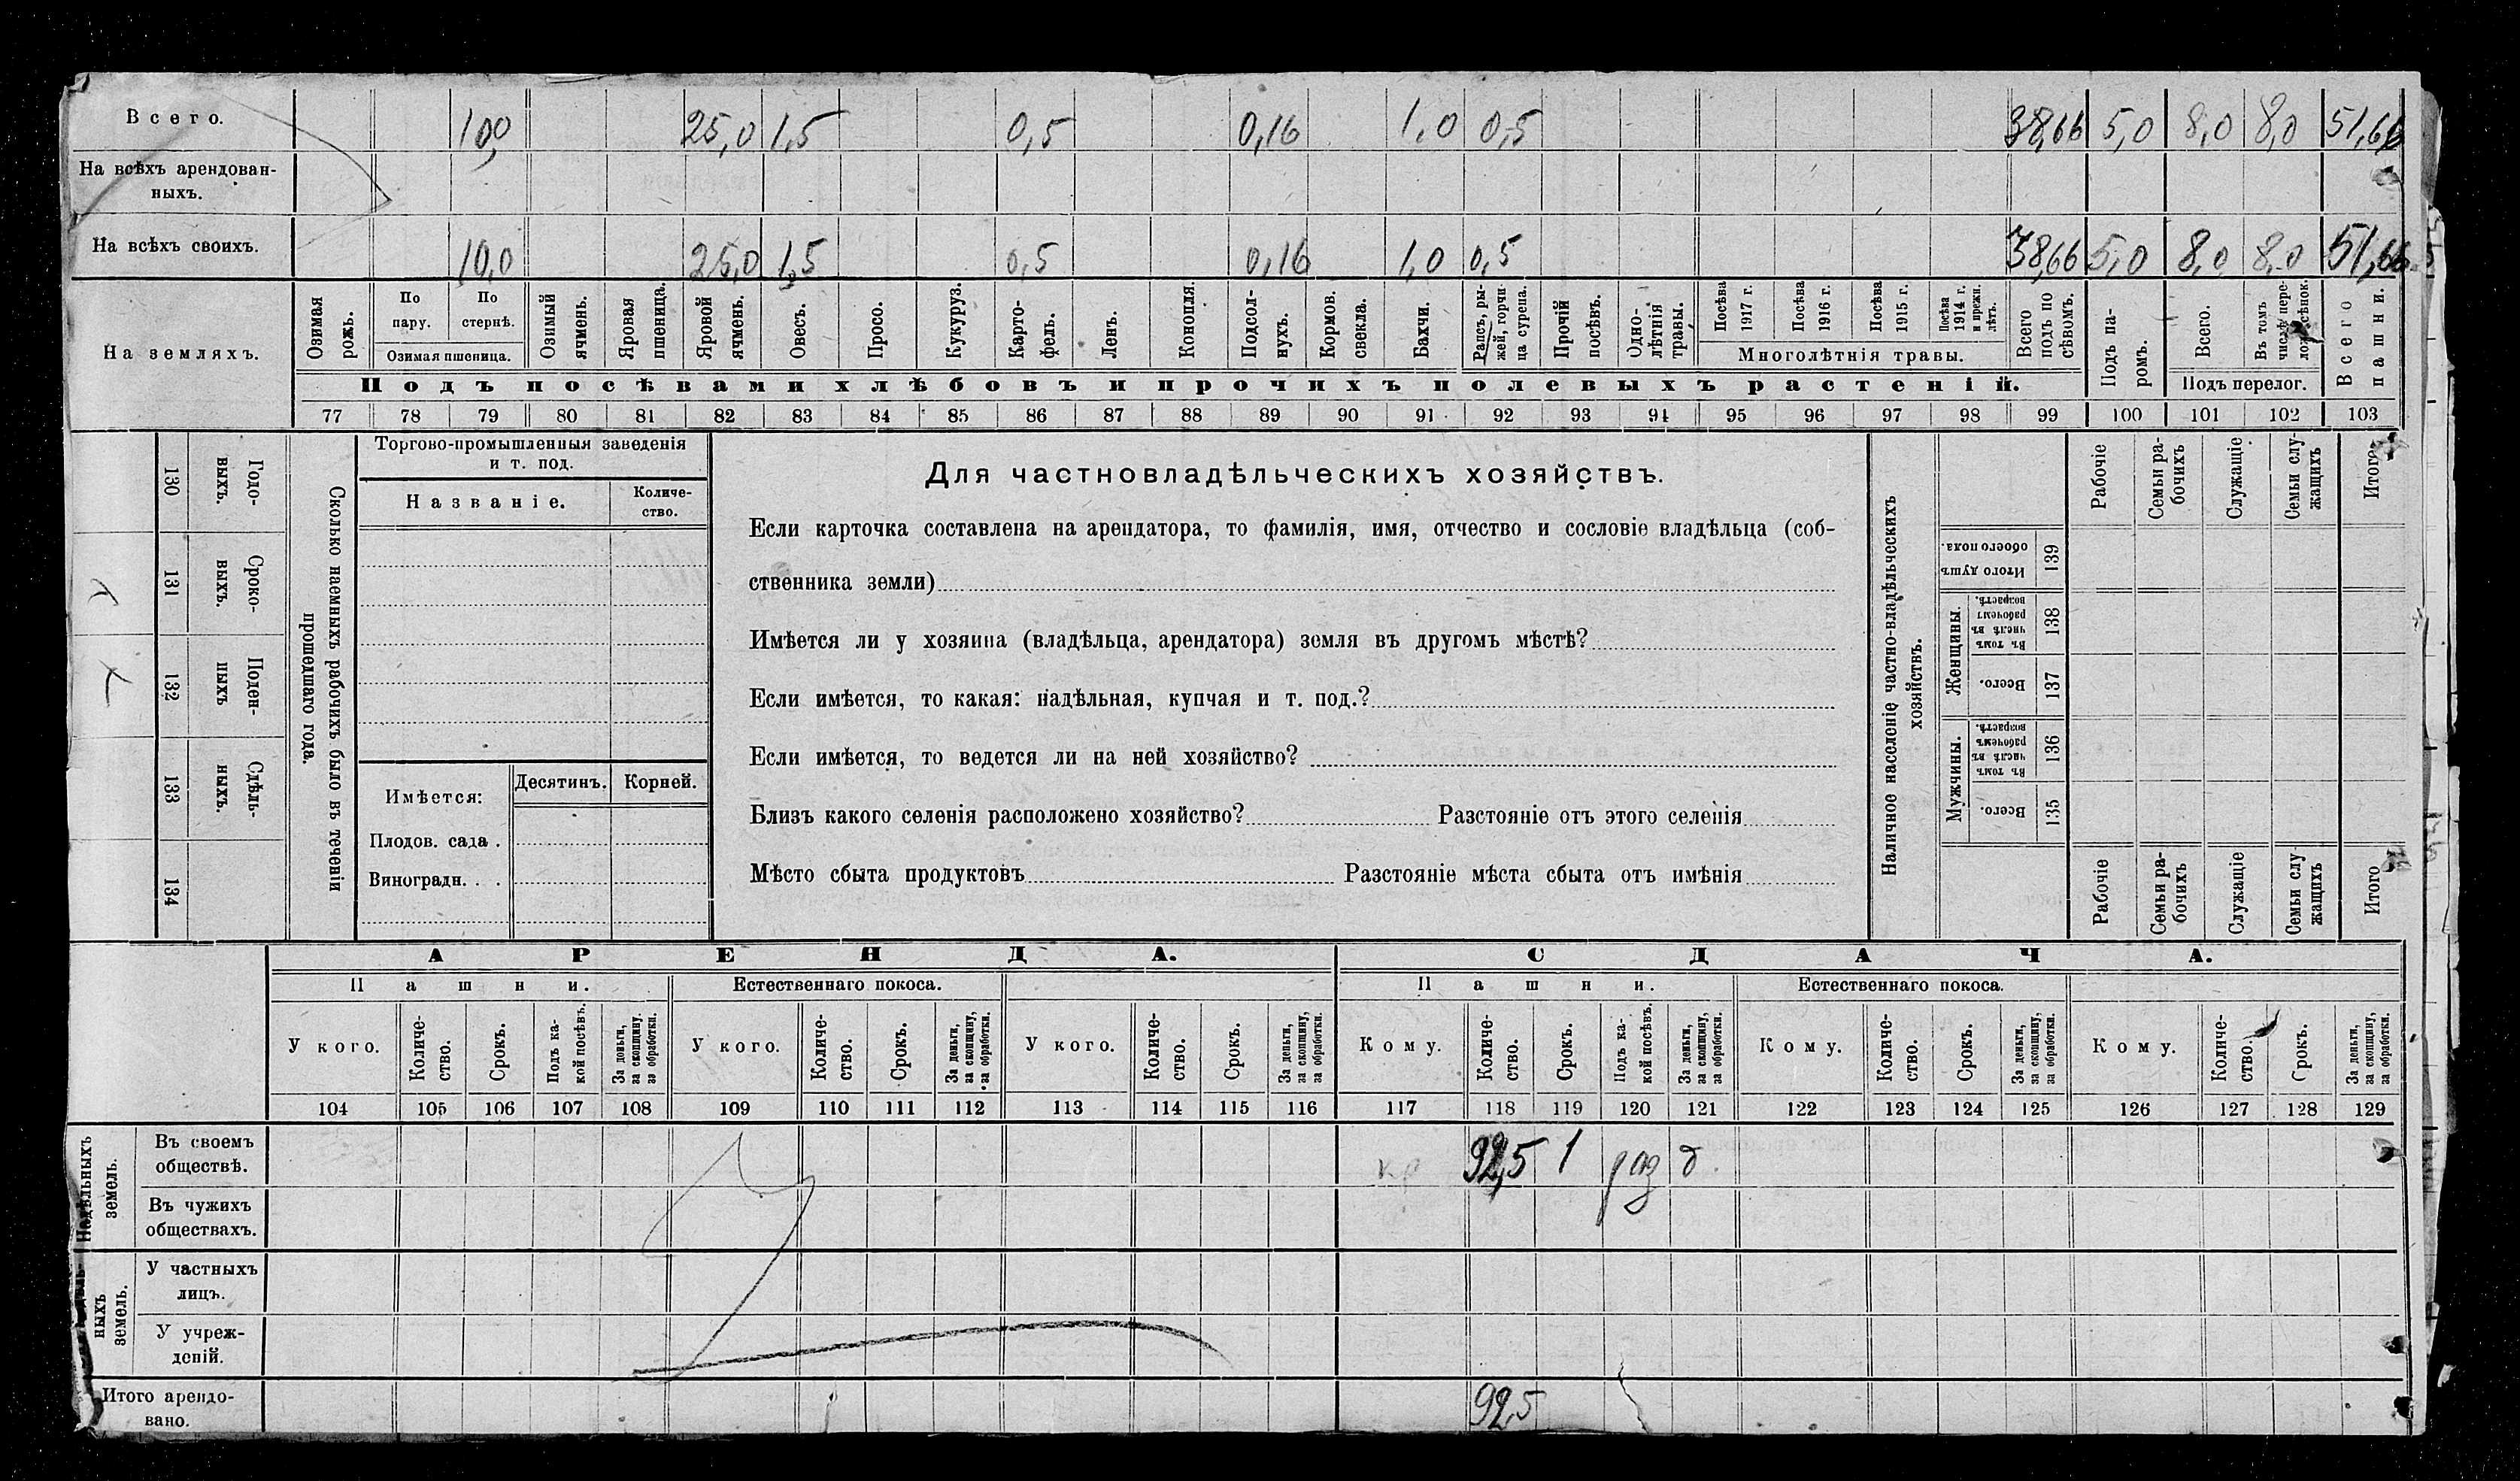 Всего. 10,0 25,0 1,5 0,5 0,16 1,0 0,5 38,66 5,0 8,0 8,0 51,66
На всѣхъ арендован-
ныхъ.
На всѣхъ своихъ. 10,0 25,0 1,5 0,5 0,16 1,0 0,5 38,66 5,0 8,0 8,0 51,66
На земляхъ.
Озимая рожь.
По пару.
По стернѣ.
Озимая пшеница.
Озимый ячмень.
Яровая пшеница.
Яровой ячмень.
Овесъ.
Просо.
Кукуруз.
Карто-
фель.
Ленъ.
Конопля.
Подсол-
нухъ.
Кормов. свекла.
Бахчи.
Рапсъ, ры-
жей, горчи
ца сурепа.
Прочій посѣвъ.
Одно-
лѣтнія
травы.
Посѣва 1917 г.
Посѣва 1916 г.
Посѣва 1915 г.
Посѣва 1914 г. и прежн. лѣтъ.
Многолѣтнія травы.
Всего подъ по сѣвомъ.
Подъ па-
ромъ.
Всего.
Въ томъ
числѣ пере-
Подъ перелог.
Всего пашни.
Подъ посѣвами хлѣбовъ и прочихъ полевыхъ растеній.
77 78 79 80 81 82 83 84 85 86 87 88 89 90 91 92 93 94 95 96 97 98 99 100 101 102 103
130 Годо-
выхъ.
131 Сроко-
выхъ.
132 Поден-
ныхъ
133 Сдѣль-
ныхъ.
134
Сколько наемныхъ рабочихъ было въ теченіи
прошедшаго года.
Торгово-промышленныя заведенія
и т. под.
Названіе.
Количе-
ство.
Имѣется:
Десятинъ.
Корней.
Плодов. сада .
Виноградн. . .
Для частновладѣльческихъ хозяйствъ.
Если карточка составлена на арендатора, то фамилія, имя, отчество и сословіе владѣльца (соб-
ственника земли)
Имѣется ли у хозяина (владѣльца, арендатора) земля въ другомъ мѣстѣ?
Если имѣется, то какая: надѣльная, купчая и т. под.?
Если имѣется, то ведется ли на ней хозяйство?
Близъ какого селенія расположено хозяйство? Разстояніе отъ этого селенія
Мѣсто сбыта продуктовъ Разстояніе мѣста сбыта отъ имѣнія
Наличное населеніе частно-владѣльческихъ
хозяйствъ.
Рабочіе
Семьи ра-
бочихъ
Служащіе
Семьи слу-
жащихъ
Итого
Итого душъ
обоего пола.
139
Женщины.
Въ томъ
числѣ въ
рабочемъ
возрастѣ.
138
Всего.
137
Мужчины.
Въ томъ
числѣ въ
рабочемъ
возрастѣ.
136
Всего.
135
Рабочіе
Семьи ра-
бочихъ
Служащіе
Семьи слу-
жащихъ
Итого
АРЕНДА. СДАЧА.
Пашни. Естественнаго покоса. Пашни. Естественнаго покоса.
У кого.
Количе-
ство.
Срокъ.
Подъ ка-
кой посѣвъ.
За деньги,
за скопщину.
за обработки.
У кого.
Количе-
ство.
Срокъ.
За деньги,
за скопщину,
за обработки.
У кого.
Количе-
ство.
Срокъ.
За деньги,
за скопщину,
за обработки.
Кому.
Количе-
ство.
Срокъ.
Подъ ка-
кой посѣвъ.
За деньги,
за скопщину,
за обработки.
Кому.
Количе-
ство.
Срокъ.
За деньги,
за скопщину,
за обработки.
Кому.
Количе-
ство.
Срокъ.
За деньги,
за скопщину,
за обработки.
104 105 106 107 108 109 110 111 112 113 114 115 116 117 118 119 120 121 122 123 124 125 126 127 128 129
Надѣльныхъ
земель.
Въ своемъ
обществѣ.
кр 92,5 1 раз д.
Въ чужихъ
обществахъ.
ныхъ
земель.
У частныхъ
лицъ.
У учреж-
деній.
Итого арендо-
вано.
92,5